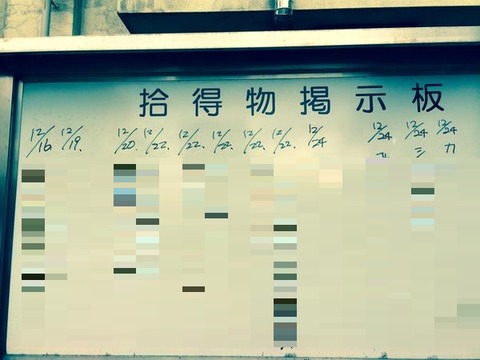 拾得物掲示板
12/16 12/19. 12/20. 12/22. 12/22. 12/22. 12/22. 12/22. 12/24 12/24. 12/24 12/24
ミ カ